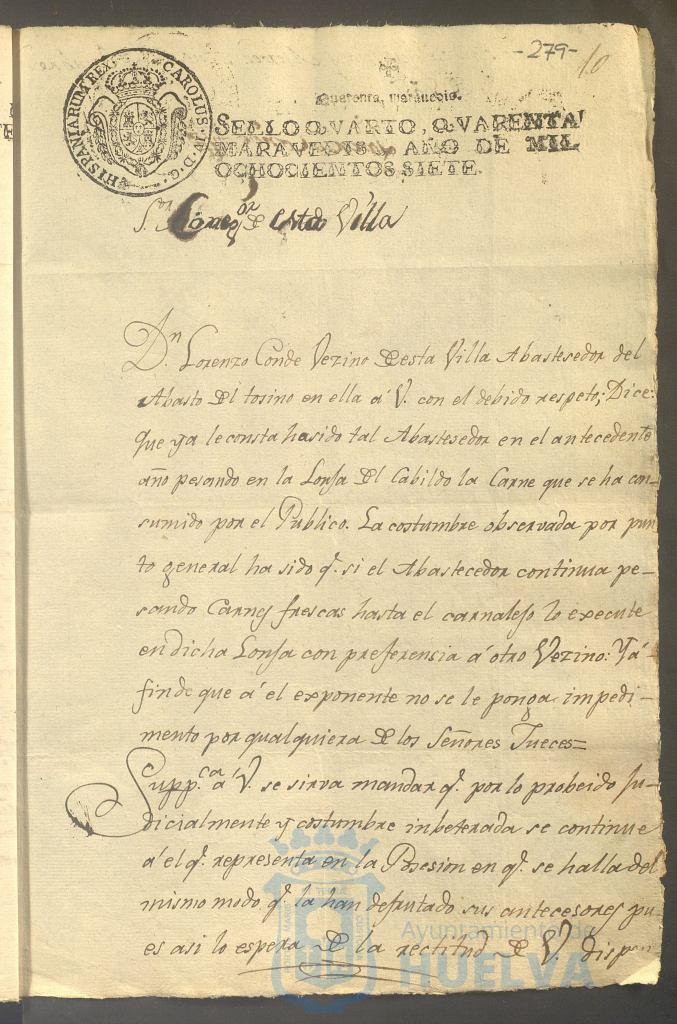 -279- 10
HISPANIARUM REX. CAROLUS · IV · D · G ·
Quarenta maravedis.
SELLO QVARTO, QVARENTA
MARAVEDIS, AÑO DE MIL
OCHOCIENTOS SIETE.
S.or Correg.or de esta Villa
D.n Lorenzo Conde Vezino de esta Villa Abastesedor del
Abasto del tosino en ella á V. con el debido respeto; Dice:
que ya le consta ha sido tal Abastesedor en el antecedente
año pesando en la Lonja del Cabildo la Carne que se ha con-
sumido por el Publico. La costumbre observada por pun
to general ha sido q.e si el Abastecedor continua pe-
sando Carnes frescas hasta el carnalejo lo execute
en dicha Lonja con preferencia á otro Vezino: Y á
fin de que á el exponente no se le ponga impedi-
mento por qualquiera de los Señores Jueces=
Supp.ca á V. se sirva mandar q.e por lo probeido Ju-
dicialmente y costumbre inbeterada se continue
á el q.e representa en la Posesion en q.e se halla del
mismo modo q.e la han defrutado sus antecesores pu-
es asi lo espera de la rectitud de V. dispen
Ayuntamiento de
HUELVA